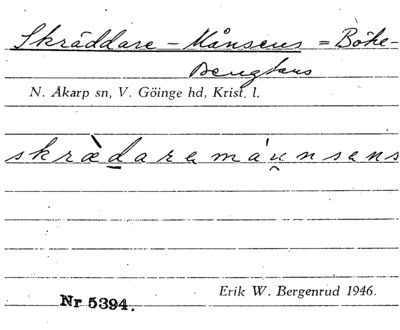 Skräddare - Månsens = Böke-
Bengtans
N. Åkarp sn, V. Göinge hd, Krist. l.
skræ̀daremáu̯nsens
Erik W. Bergenrud 1946.
Nr 5394.